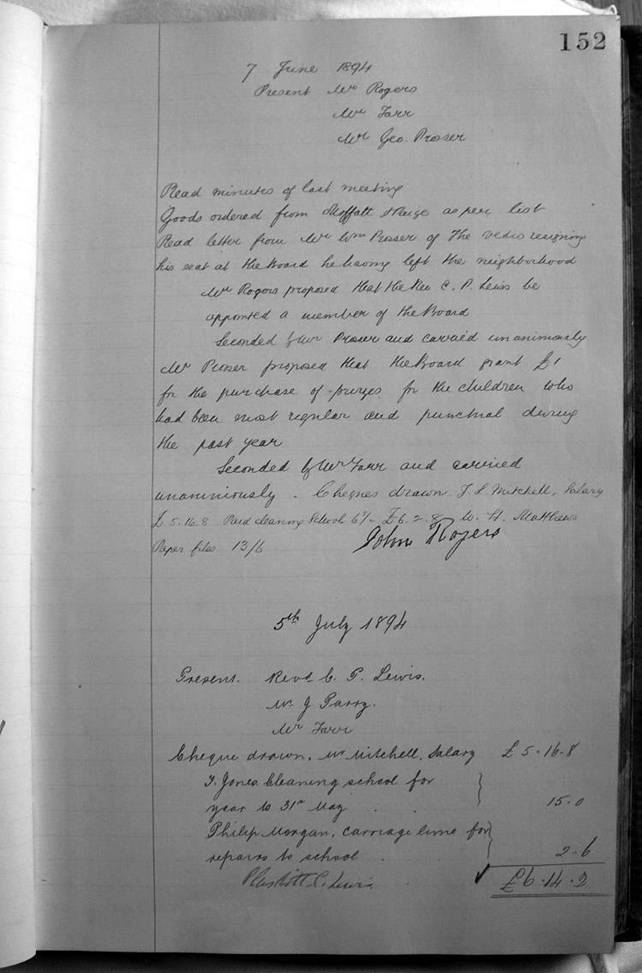 152
7 June 1894
Present Mr Rogers
Mr Farr
Mr Geo. Prosser
Read minutes of last meeting
Goods ordered from Moffatt & Paige as per list
Read letter from Mr Wm Prosser of The resigning
his seat at the Board he having left the neighborhood
Mr Rogers proposed that the Rev C. P. Lewis be
appointed a member of the Board
Seconded by Mr Prosser and carried unanimously
Mr Prosser proposed that the Board grant £1
for the purchase of prizes for the children who
had been most regular and punctual during
the past year
Seconded by Mr Farr and carried
unanimously. Cheques drawn T. S. Mitchell, Salary
£5.16.8 Paid cleaning School 6/- £6.2.8 W. H. Matthews
Paper files 13/6 John Rogers
5th July 1894
Present. Revd. C. P. Lewis.
Mr J Parry.
Mr Farr
Cheque drawn. Mr Mitchell, Salary £5-16-8
T. Jones Cleaning school for
year to 31st May 15.0
Philip Morgan, carriage lime for
repairs to school 2-6
C. Lewis £6.14.2